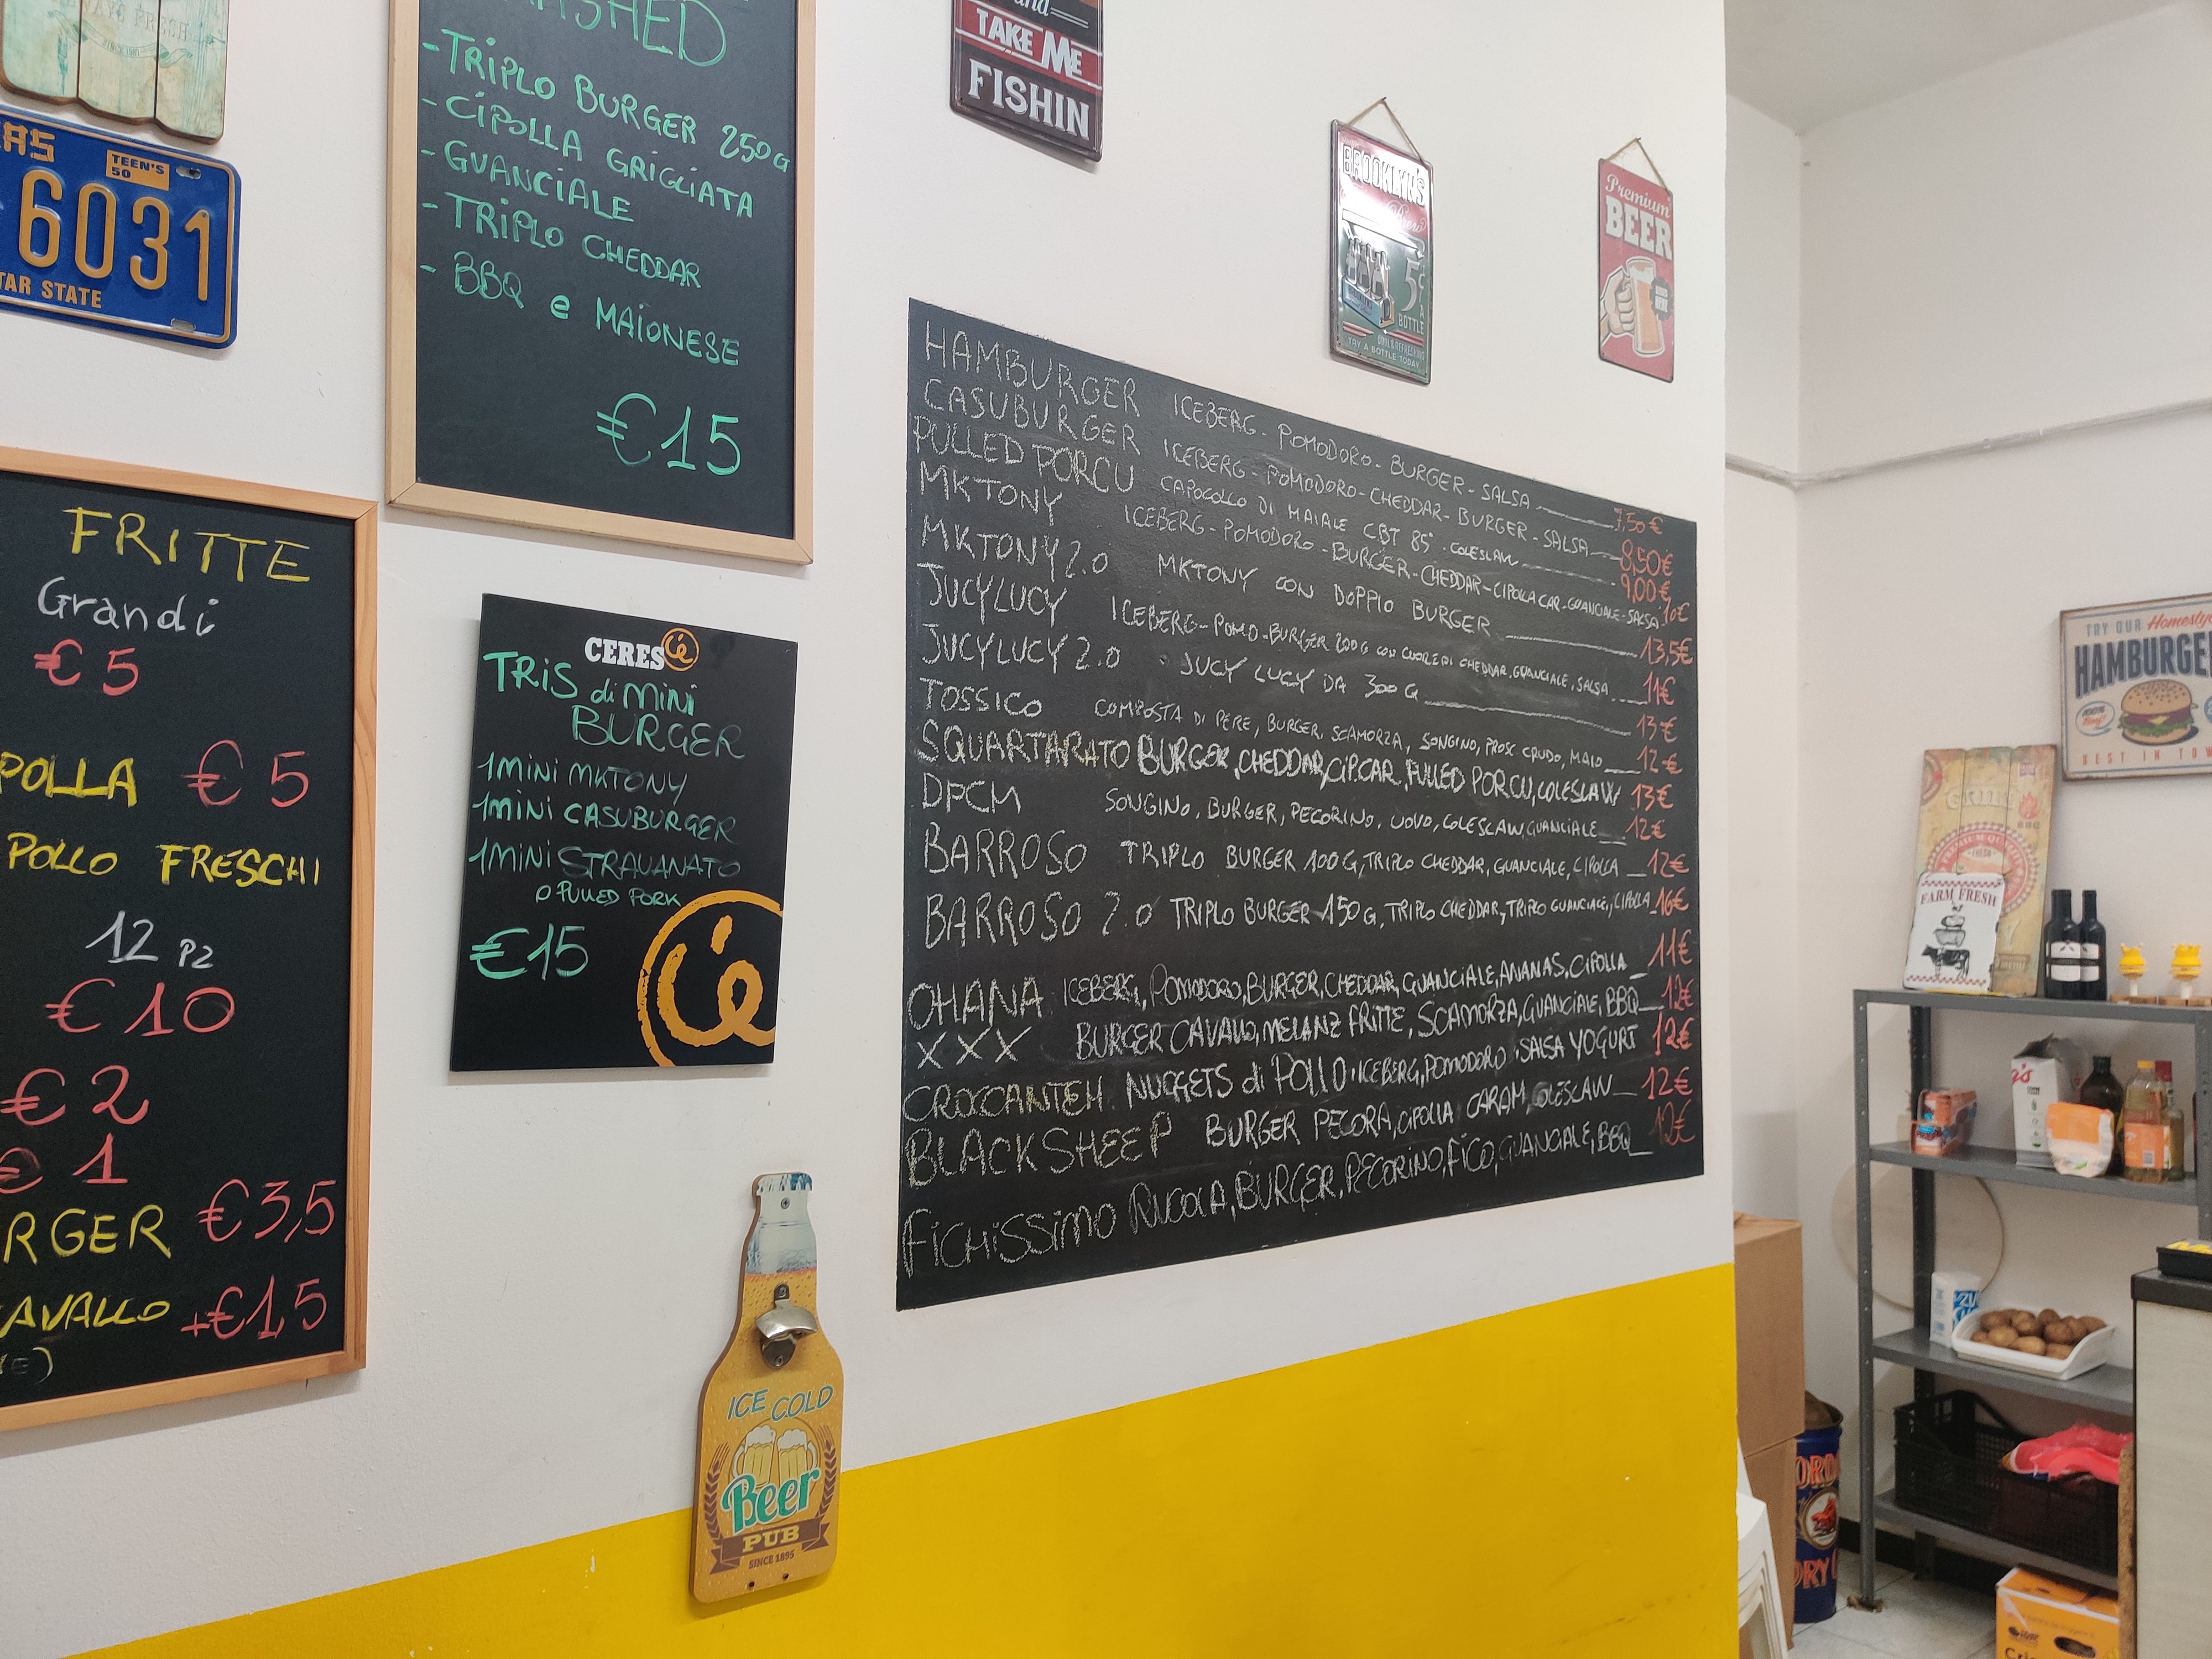 6031
TEEN'S
50
TAR STATE
FRITTE
Grandi
€5
POLLA €5
POLLO FRESCHI
12 PZ
€10
€2
€1
RGER €3,5
AVALLO +€1,5
-TRIPLO BURGER 250G
-CIPOLLA GRIGLIATA
-GUANCIALE
-TRIPLO CHEDDAR
-BBQ e MAIONESE
€15
CERES
TRIS di MINI
BURGER
1 MINI MKTONY
1 MINI CASUBURGER
1 MINI STRAVANATO
O PULLED PORK
€15
ICE COLD
Beer
PUB
SINCE 1895
and
TAKE ME
FISHIN
BROOKLYN'S
5¢
A
BOTTLE
TRY A BOTTLE TODAY
Premium
BEER
HAMBURGER ICEBERG - POMODORO - BURGER - SALSA 7,50 €
CASUBURGER ICEBERG - POMODORO - CHEDDAR - BURGER - SALSA 8,50€
PULLED PORCU CAPOCOLLO DI MAIALE CBT 85° - COLESLAW 9,00€
MKTONY ICEBERG - POMODORO - BURGER - CHEDDAR - CIPOLLA CAR - GUANCIALE - SALSA 10€
MKTONY 2.0 MKTONY CON DOPPIO BURGER 13,5€
JUCYLUCY ICEBERG - POMO - BURGER 200G CON CUORE DI CHEDDAR, GUANCIALE, SALSA 11€
JUCYLUCY 2.0 JUCY LUCY DA 300 G 13€
TOSSICO COMPOSTA DI PERE, BURGER, SCAMORZA, SONGINO, PROSC CRUDO, MAIO 12€
SQUARTARATO BURGER, CHEDDAR, CIP.CAR, PULLED PORCU, COLESLAW 13€
DPCM SONGINO, BURGER, PECORINO, UOVO, COLESLAW, GUANCIALE 12€
BARROSO TRIPLO BURGER 100 G, TRIPLO CHEDDAR, GUANCIALE, CIPOLLA 12€
BARROSO 2.0 TRIPLO BURGER 150 G, TRIPLO CHEDDAR, TRIPLO GUANCIALE, CIPOLLA 16€
OHANA ICEBERG, POMODORO, BURGER, CHEDDAR, GUANCIALE, ANANAS, CIPOLLA 11€
XXX BURGER CAVALLO, MELANZ FRITTE, SCAMORZA, GUANCIALE, BBQ 12€
CROCCANTEH NUGGETS di POLLO. ICEBERG, POMODORO, SALSA YOGURT 12€
BLACK SHEEP BURGER PECORA, CIPOLLA CARAM, COLESLAW 12€
FICHISSIMO RUCOLA, BURGER, PECORINO, FICO, GUANCIALE, BBQ 12€
TRY OUR Homestyle
HAMBURGE
BEST IN TOW
FARM FRESH